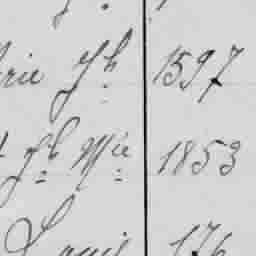 rie Jh 1597
Jh Mie 1853
Louis 176